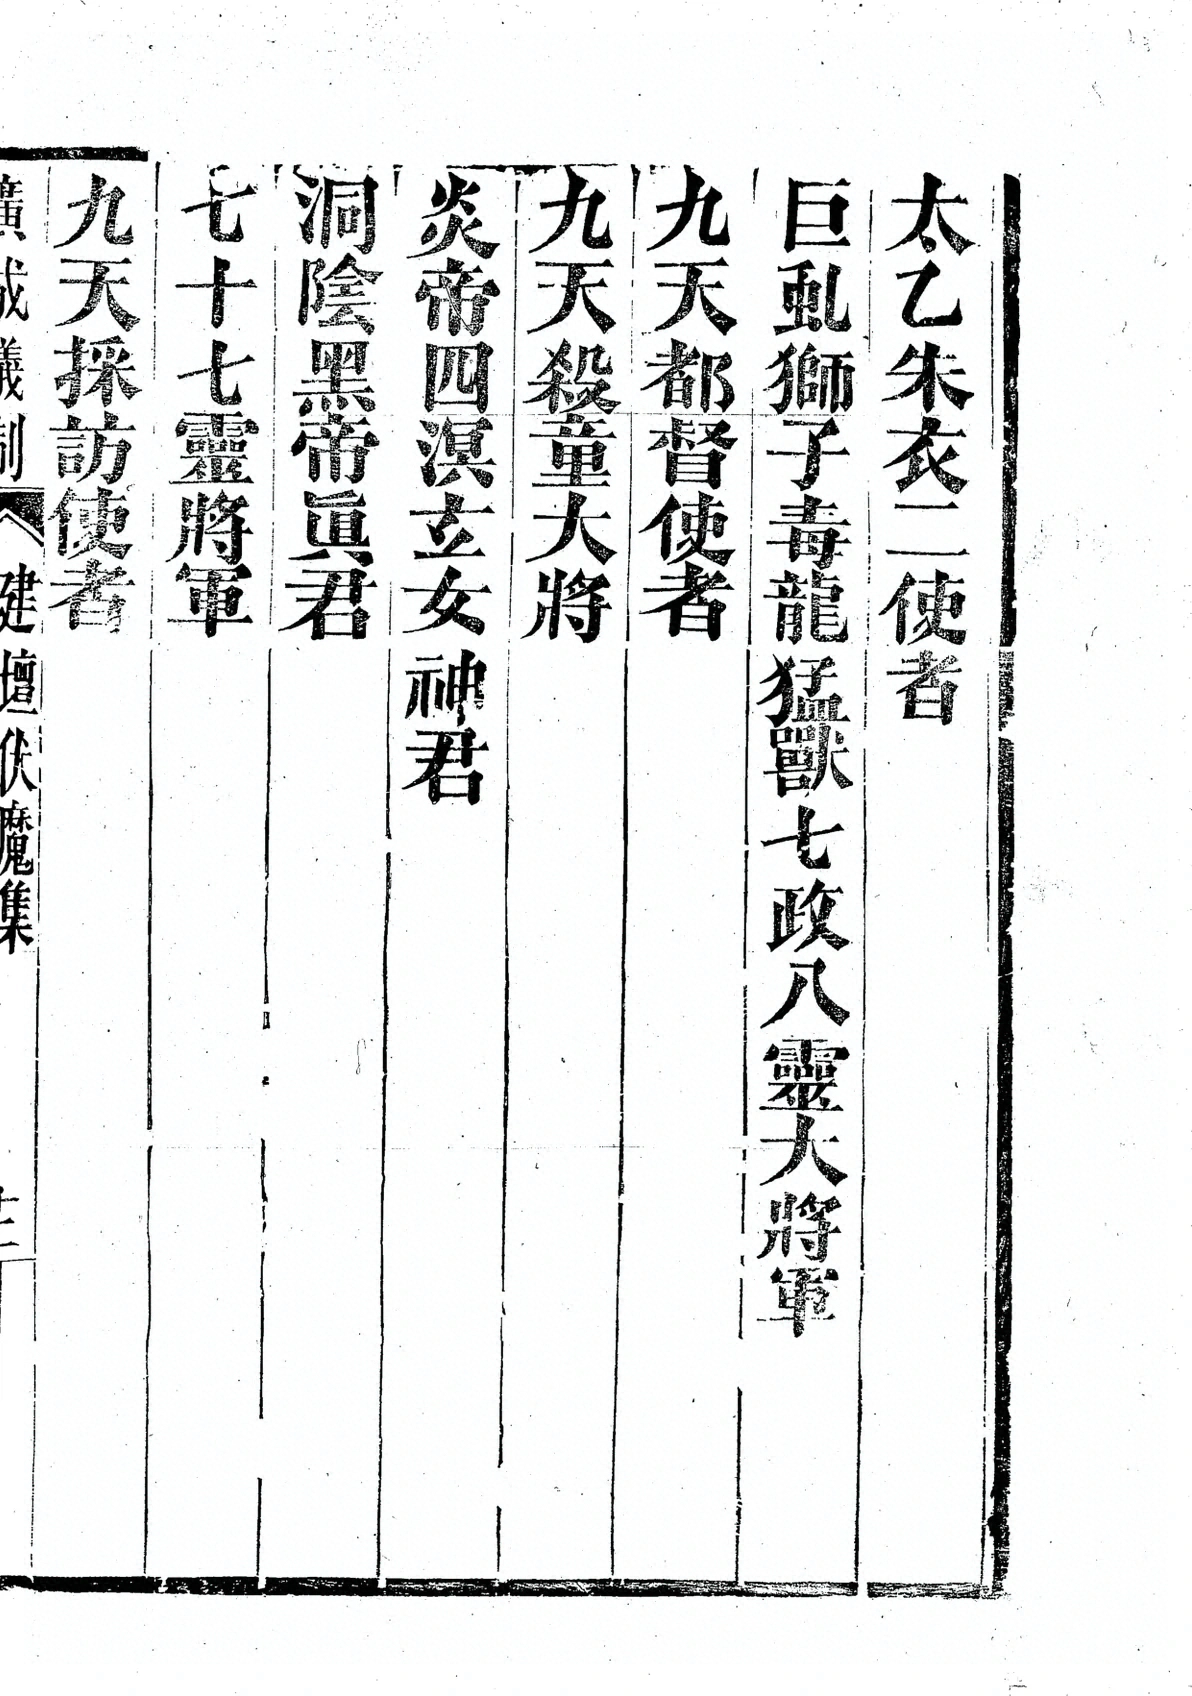 太乙朱衣二使者
巨虬獅子毒龍猛獸七政八靈大將軍
九天都督使者
九天殺童大將
炎帝四溟玄女神君
洞陰黑帝眞君
七十七靈將軍
九天採訪使者
廣成儀制 建壇伏魔集 十三